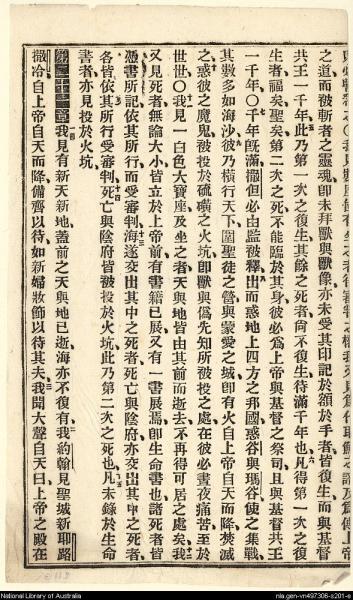 之道而被斬者之靈魂卽未拜獸與獸像亦未受其印記於額於手者皆復生而與基督
共王一千年此乃第一次之復生其餘之死者尙不復生待滿千年也凡得第一次之復
生者福矣聖矣第二次之死不能臨於其身彼必爲上帝與基督之祭司且與基督共王
一千年〇千年旣滿撒但必由監被釋出而惑地上四方之邦國惑谷與瑪谷使之集戰
其數多如海沙彼乃橫行天下圍聖徒之營與蒙愛之城卽有火自上帝自天而降焚滅
之惑彼之魔鬼被投於硫磺之火坑卽獸與僞先知所被投之處在彼必晝夜痛苦至於
世世〇我見一白色大寶座及坐之者天與地皆由其前而逝去不再得可居之處矣我
又見死者無論大小皆立於上帝前有書籍已展又有一書展焉卽生命書也諸死者皆
憑書所記依其所行而受審判海遂交出其中之死者死亡與陰府亦交出其中之死者
各皆依其所行受審判死亡與陰府皆被投於火坑此乃第二次之死也凡未錄於生命
書者亦見投於火坑
第二十一章 我見有新天新地蓋前之天與地已逝海亦不復有我約翰見聖城新耶路
撒冷自上帝自天而降備齊以待如新婦妝飾以待其夫我聞大聲自天曰上帝之殿在
National Library of Australia
nla.gen-vn497306-s201-e